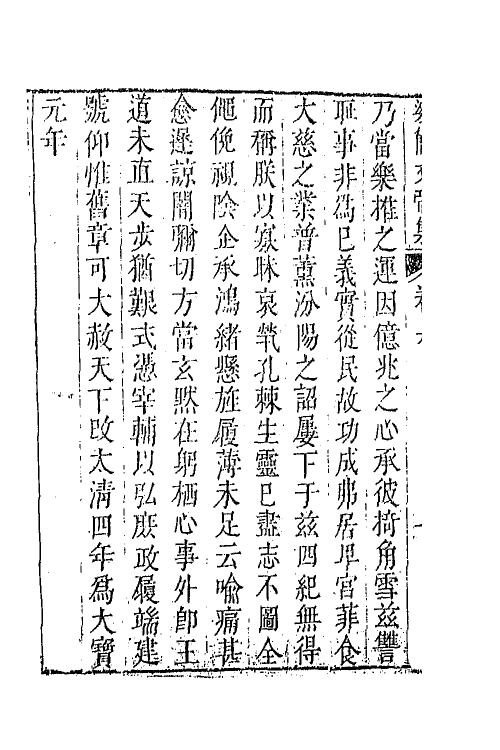 梁簡文帝集
乃當樂推之運因億兆之心承彼掎角雪茲讐
耻事非爲已義實從民故功成弗居卑宮菲食
大慈之業普薰汾陽之詔屢下于茲四紀無得
而稱朕以寡昧哀煢孔棘生靈已盡志不圖全
僶俛視陰企承鴻緒懸旌履薄未足云喻痛甚
愈遲諒闇彌切方當玄黙在躬栖心事外卽王
道未直天步猶艱式憑宰輔以弘庶政履端建
號仰惟舊章可大赦天下改太清四年爲大寶
元年